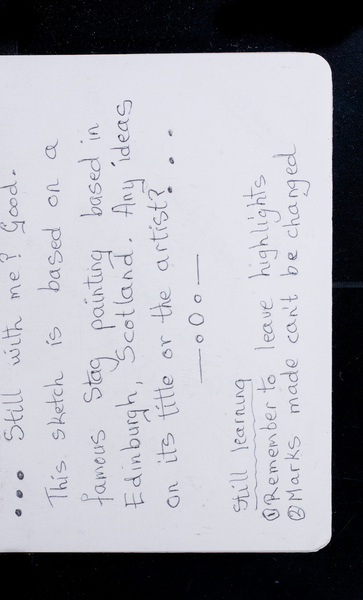 ... Still with me? Good.
This sketch is based on a
famous stag painting based in
Edinburgh, Scotland. Any ideas
on its title or the artist? ...
—o O o—
Still learning
① Remember to leave highlights
② Marks made can't be changed